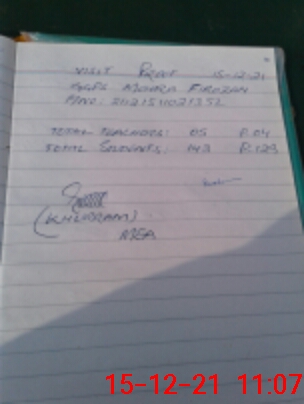 VISIT PROOF 15-12-21
GGPS MOHRA FIROZAN
TOTAL TEACHERS: 05 P.04
TOTAL STUDENTS: 143 P.129
(KHURRAM)
MEA
15-12-21 11:07